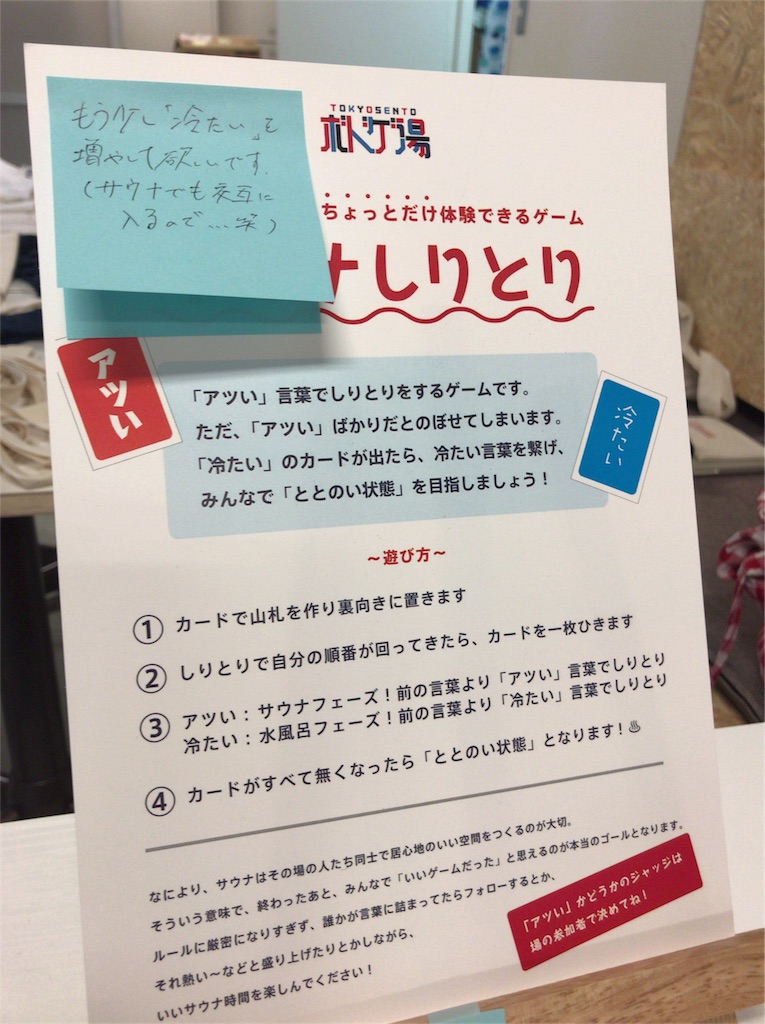 もう少し「冷たい」を
増やして欲しいです。
(サウナでも交互に
入るので…笑)
TOKYOSENTO
ボドゲ湯
ちょっとだけ体験できるゲーム
ナしりとり
アツい
「アツい」言葉でしりとりをするゲームです。
ただ、「アツい」ばかりだとのぼせてしまいます。
「冷たい」のカードが出たら、冷たい言葉を繋げ、
みんなで「ととのい状態」を目指しましょう!
冷たい
〜遊び方〜
① カードで山札を作り裏向きに置きます
② しりとりで自分の順番が回ってきたら、カードを一枚ひきます
③ アツい:サウナフェーズ!前の言葉より「アツい」言葉でしりとり
冷たい:水風呂フェーズ!前の言葉より「冷たい」言葉でしりとり
④ カードがすべて無くなったら「ととのい状態」となります!♨
なにより、サウナはその場の人たち同士で居心地のいい空間をつくるのが大切。
そういう意味で、終わったあと、みんなで「いいゲームだった」と思えるのが本当のゴールとなります。
ルールに厳密になりすぎず、誰かが言葉に詰まってたらフォローするとか、
それ熱い〜などと盛り上げたりとかしながら、
いいサウナ時間を楽しんでください!
「アツい」かどうかのジャッジは
場の参加者で決めてね!